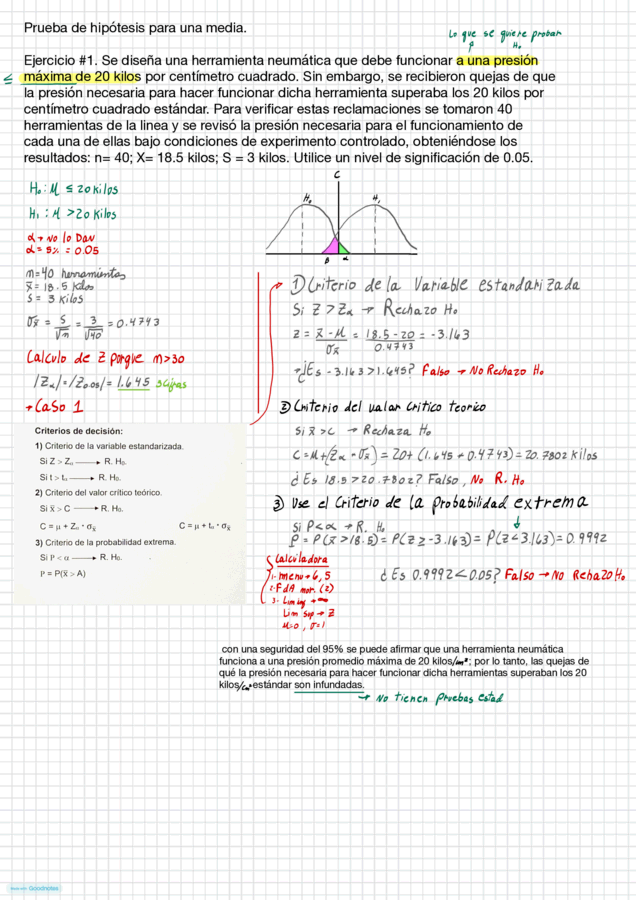 Prueba de hipótesis para una media.
Lo que se quiere probar
H₀
Ejercicio #1. Se diseña una herramienta neumática que debe funcionar a una presión
≤ máxima de 20 kilos por centímetro cuadrado. Sin embargo, se recibieron quejas de que
la presión necesaria para hacer funcionar dicha herramienta superaba los 20 kilos por
centímetro cuadrado estándar. Para verificar estas reclamaciones se tomaron 40
herramientas de la linea y se revisó la presión necesaria para el funcionamiento de
cada una de ellas bajo condiciones de experimento controlado, obteniéndose los
resultados: n= 40; X= 18.5 kilos; S = 3 kilos. Utilice un nivel de significación de 0.05.
H₀: M ≤ 20 Kilos
H₁: M > 20 Kilos
α → No lo Dan
α = 5% = 0.05
n=40 herramientas
x̄ = 18.5 Kilos
S = 3 Kilos
σx̄ = S/√n = 3/√40 = 0.4743
Calculo de Z porque n>30
/Zα/=/Z0.05/= 1.645 3cifras
→ Caso 1
C
H₀ H₁
β α
Criterios de decisión:
1) Criterio de la variable estandarizada.
Si Z > Zα → R. H₀.
Si t > tα → R. H₀.
2) Criterio del valor crítico teórico.
Si x̄ > C → R. H₀.
C = μ + Zα * σx̄ C = μ + tα * σx̄
3) Criterio de la probabilidad extrema.
Si P < α → R. H₀.
P = P(x̄ > A)
1) Criterio de la Variable estandarizada
Si Z > Zα → Rechazo H₀
Z = x̄ - M/σx̄ = 18.5 - 20/0.4743 = -3.163
→¿Es -3.163 > 1.645? Falso → No Rechazo H₀
2) Criterio del valor critico teorico
Si x̄ > C → Rechaza H₀
C = M + (Zα * σx̄) = 20 + (1.645 * 0.4743) = 20.7802 Kilos
¿Es 18.5 > 20.7802? Falso, No R. H₀
3) Use el Criterio de la probabilidad extrema
Si P < α → R. H₀
P = P(x̄ > 18.5) = P(Z ≥ -3.163) = P(Z < 3.163) = 0.9992
¿Es 0.9992 < 0.05? Falso → No Rehazo H₀
Calculadora
1- menu → 6, 5
2- F dA nor. (2)
3- Lim inf → -∞
Lim Sup → Z
M=0, σ=1
con una seguridad del 95% se puede afirmar que una herramienta neumática
funciona a una presión promedio máxima de 20 kilos/cm²; por lo tanto, las quejas de
qué la presión necesaria para hacer funcionar dicha herramientas superaban los 20
kilos/cm² estándar son infundadas.
→ No tienen Pruebas estad
Made with Goodnotes